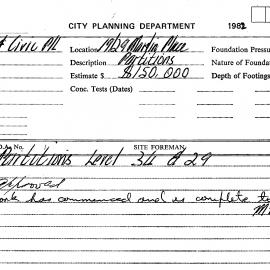 CITY PLANNING DEPARTMENT 1982
Civic Location 19/29 Martin Place Foundation Pressu
Description Partitions Nature of Founda
Estimate $ $150.000 Depth of Footings
Conc. Tests (Dates)
No. SITE FOREMAN
Partitions Level 34 29
Approved
Work has commenced and is complete to